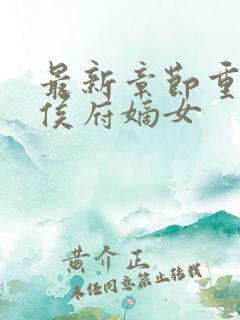 最新章节重
侯府嫡女
黄介正
未经同意禁止转载